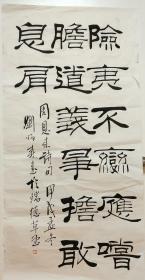 險夷不變應嚐
膽道義爭擔敢
息肩
周恩来詩句 甲戌孟冬
劉炳森書於瑞德草堂